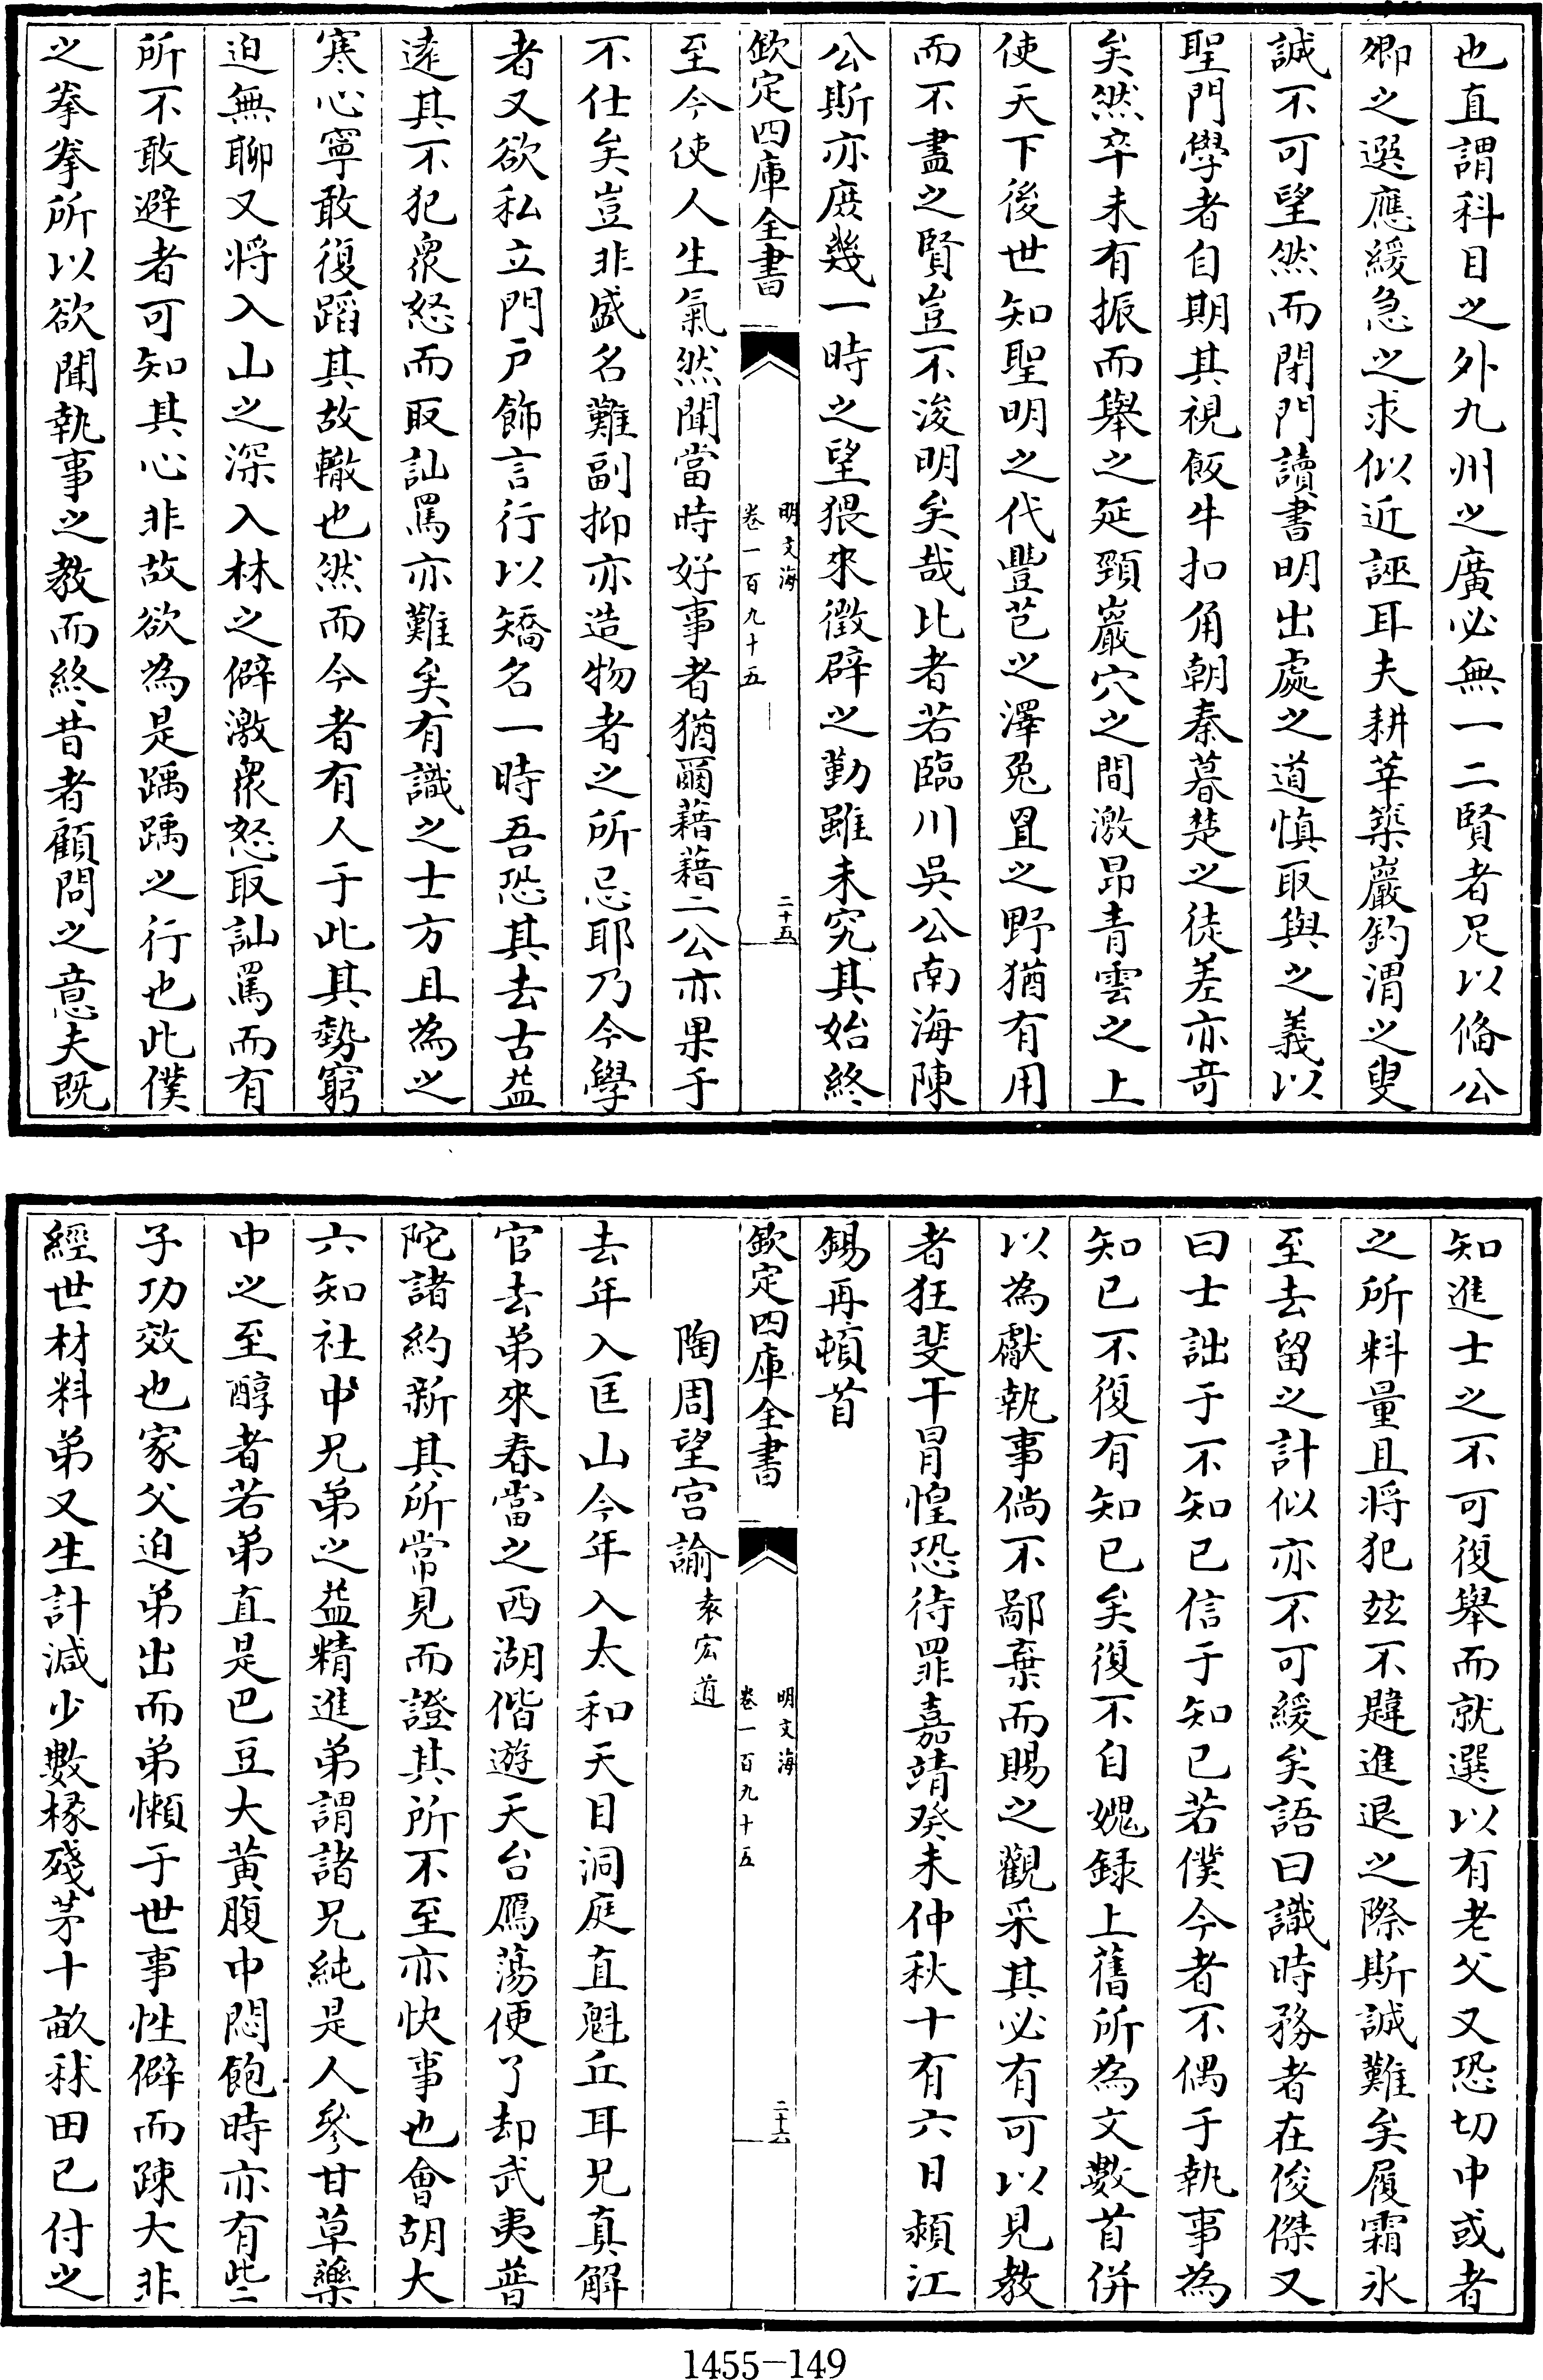 也直謂科目之外九州之廣必無一二賢者足以脩公
卿之選應緩急之求似近誣耳夫耕莘築巖釣渭之叟
誠不可望然而閉門讀書明出處之道慎取與之義以
聖門學者自期其視飯牛扣角朝秦暮楚之徒差亦竒
矣然卒未有振而舉之延頸巖穴之間激昂青雲之上
使天下後世知聖明之代豐芑之澤兔罝之野猶有用
而不盡之賢豈不浚明矣哉比者若臨川吳公南海陳
公斯亦庶幾一時之望猥來徵辟之勤雖未究其始終
欽定四庫全書
明文海
卷一百九十五
二十五
至今使人生氣然聞當時好事者猶爾藉藉二公亦果于
不仕矣豈非盛名難副抑亦造物者之所忌耶乃今學
者又欲私立門戶飾言行以矯名一時吾恐其去古益
逺其不犯衆怒而取訕罵亦難矣有識之士方且為之
寒心寧敢復蹈其故轍也然而今者有人于此其勢窮
迫無聊又將入山之深入林之僻激衆怒取訕罵而有
所不敢避者可知其心非故欲為是踽踽之行也此僕
之拳拳所以欲聞執事之教而終昔者顧問之意夫既
知進士之不可復舉而就選以有老父又恐切中或者
之所料量且將犯玆不韙進退之際斯誠難矣履霜氷
至去留之計似亦不可緩矣語曰識時務者在俊傑又
曰士詘于不知已信于知已若僕今者不偶于執事為
知已不復有知已矣復不自媿録上舊所為文數首併
以為獻執事倘不鄙棄而賜之觀采其必有可以見教
者狂斐干冒惶恐待罪嘉靖癸未仲秋十有六日潁江
錫再頓首
欽定四庫全書
明文海
卷一百九十五
二十六
陶周望宫諭袁宏道
去年入匡山今年入太和天目洞庭直魁丘耳兄真解
官去弟來春當之西湖偕遊天台鴈蕩便了却武夷普
陀諸約新其所常見而證其所不至亦快事也會胡大
六知社中兄弟之益精進弟謂諸兄純是人參甘草藥
中之至醇者若弟直是巴豆大黄腹中悶飽時亦有些二
子功效也家父迫弟出而弟懶于世事性僻而疎大非
經世材料弟又生計減少數椽殘茅十畝秫田已付之
1455-149